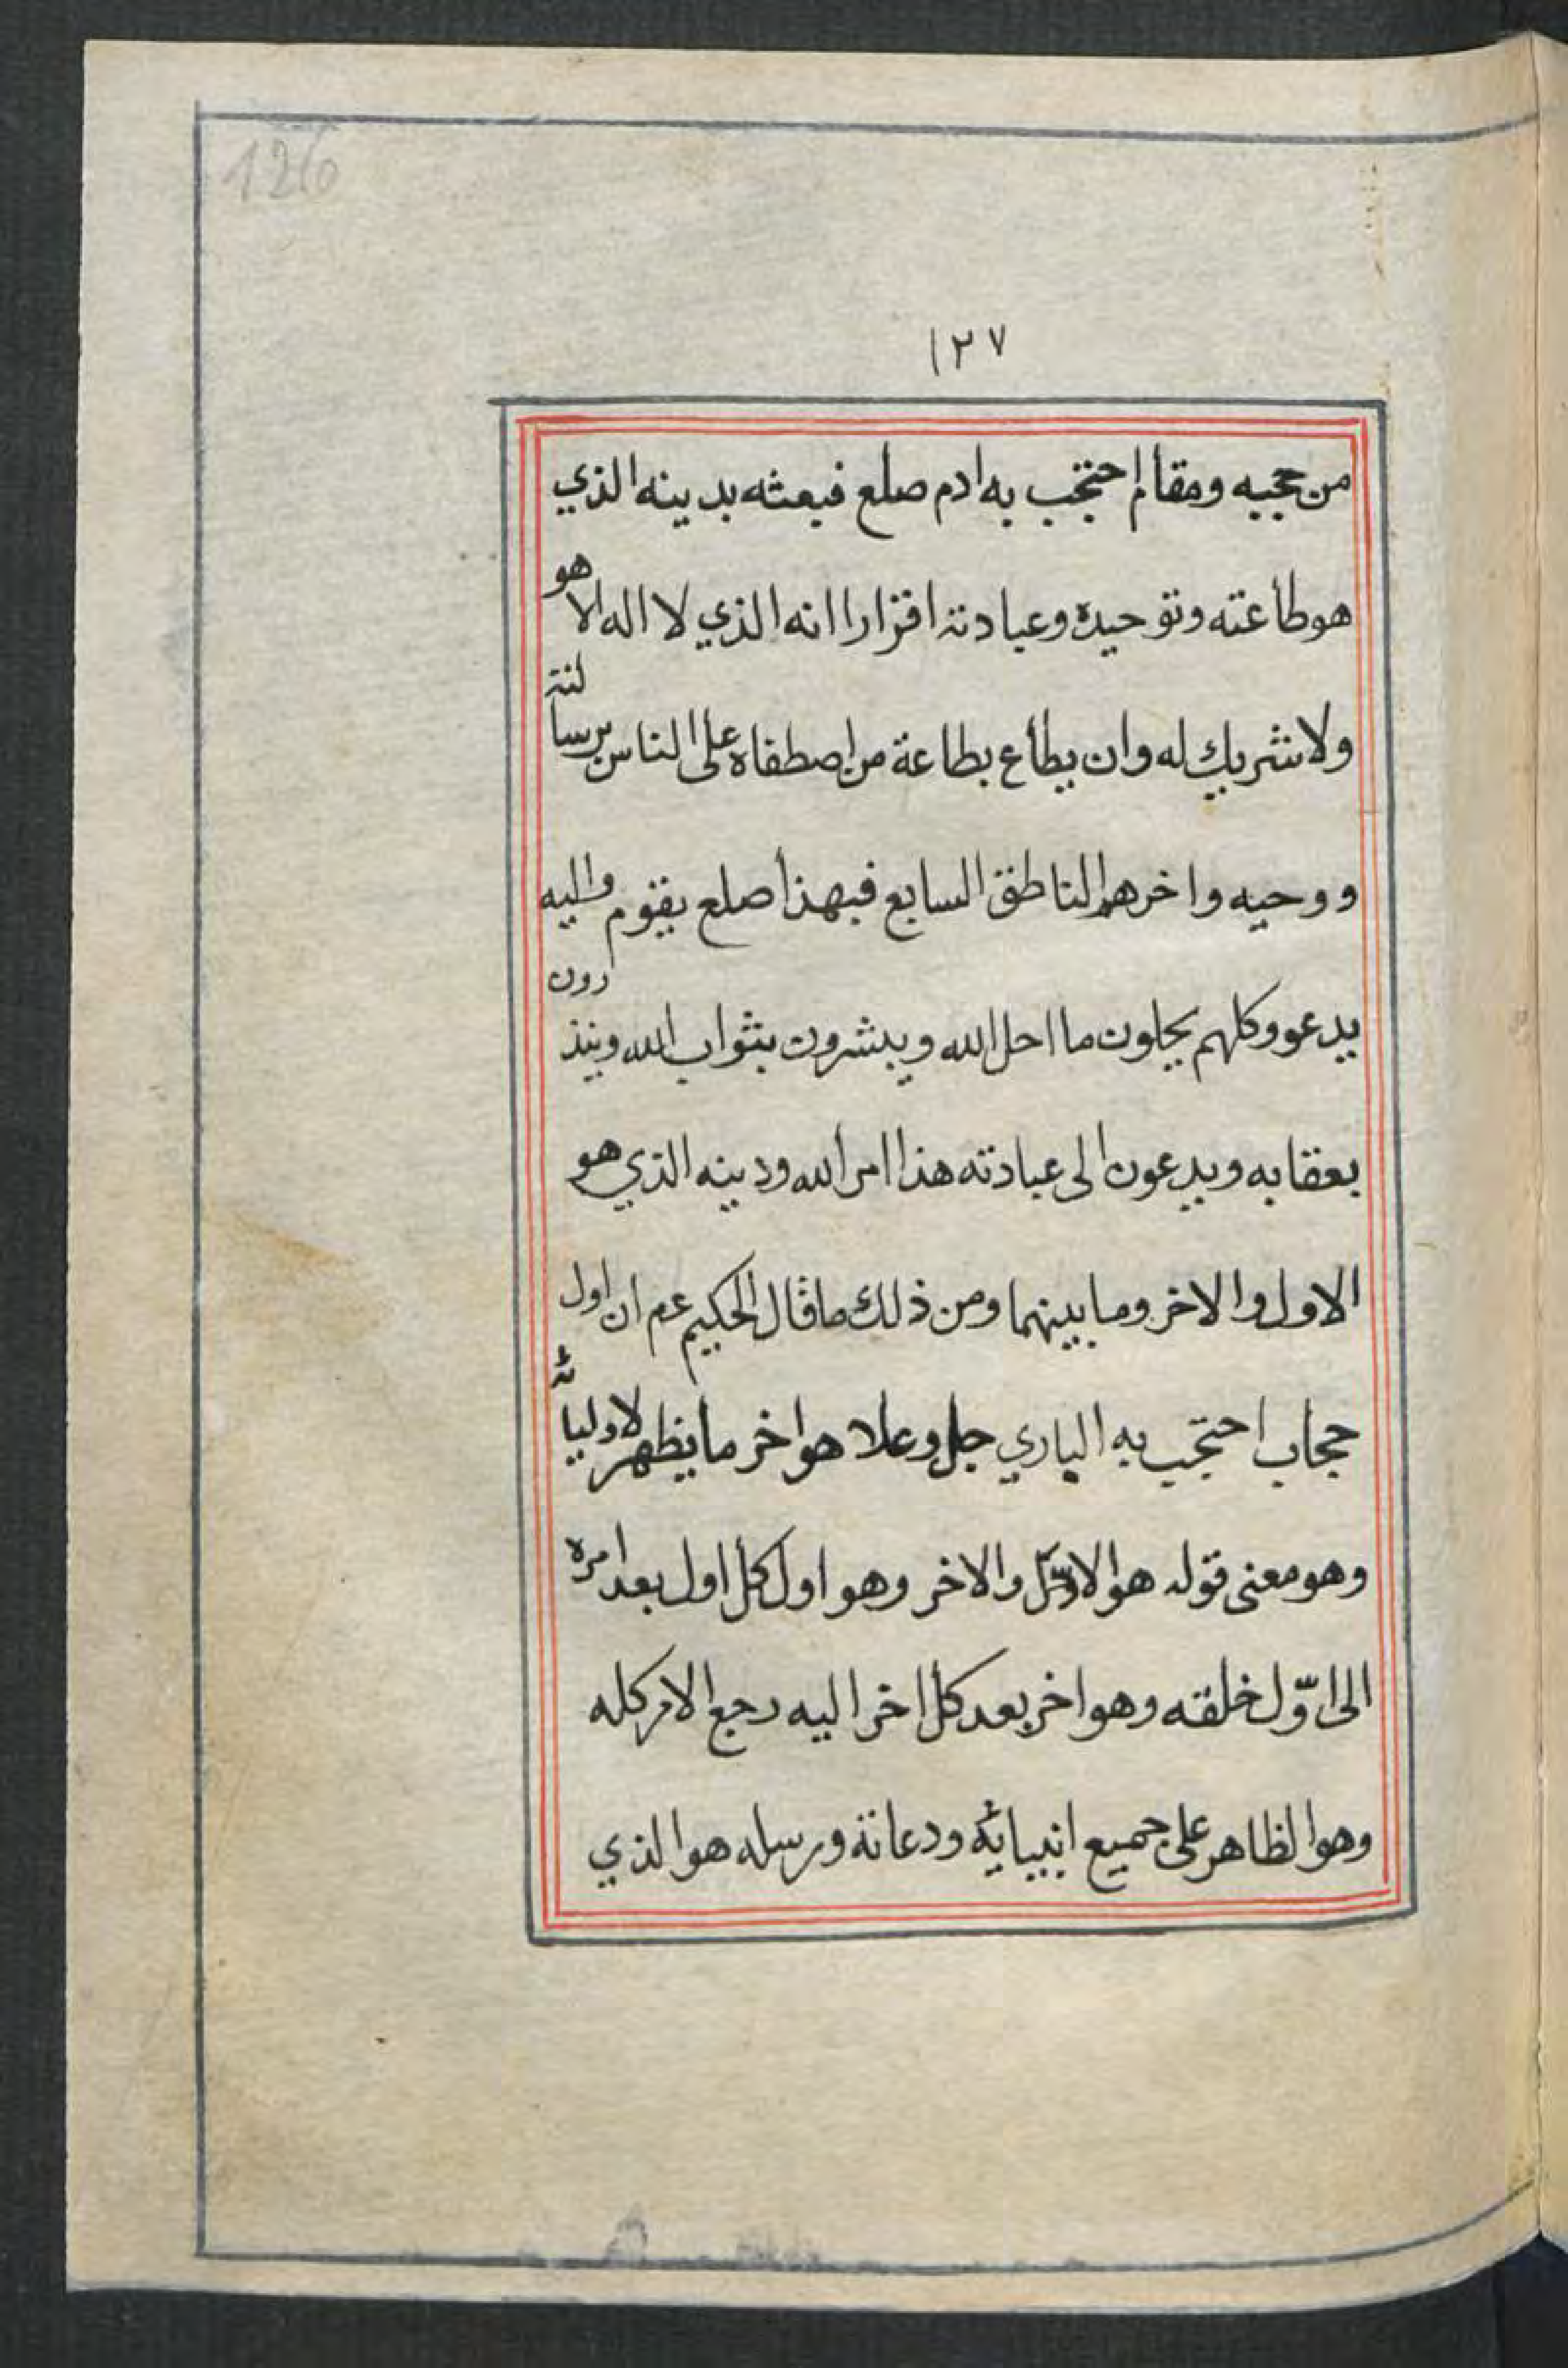 126
١٢٧
من حجبه ومقام احتجب به ادم صلع فبعثه بدينه الذي
هو طاعته وتوحيده وعبادته اقرارا انه الذي لا اله الا هو
ولا شريك له وان يطاع بطاعة من اصطفاه على الناس برسالته
ووحيه واخرهم الناطق السابع فبهذا صلع يقوم واليه
يدعو وكلهم يحلون ما احل الله ويبشرون بثواب الله وينذرون
بعقابه ويدعون الى عبادته هذا امر الله ودينه الذي هو
الاول والاخر وما بينهما ومن ذلك ما قال الحكيم عم ان اول
حجاب احتجب به الباري جل وعلا هو اخر ما يظهر لاوليائه
وهو معنى قوله هو الاول والاخر وهو اول كل اول بعد امره
الى اوّل خلقه وهو اخر بعد كل اخر اليه رجع الامر كله
وهو الظاهر على جميع انبيائه ودعاته ورسله هو الذي